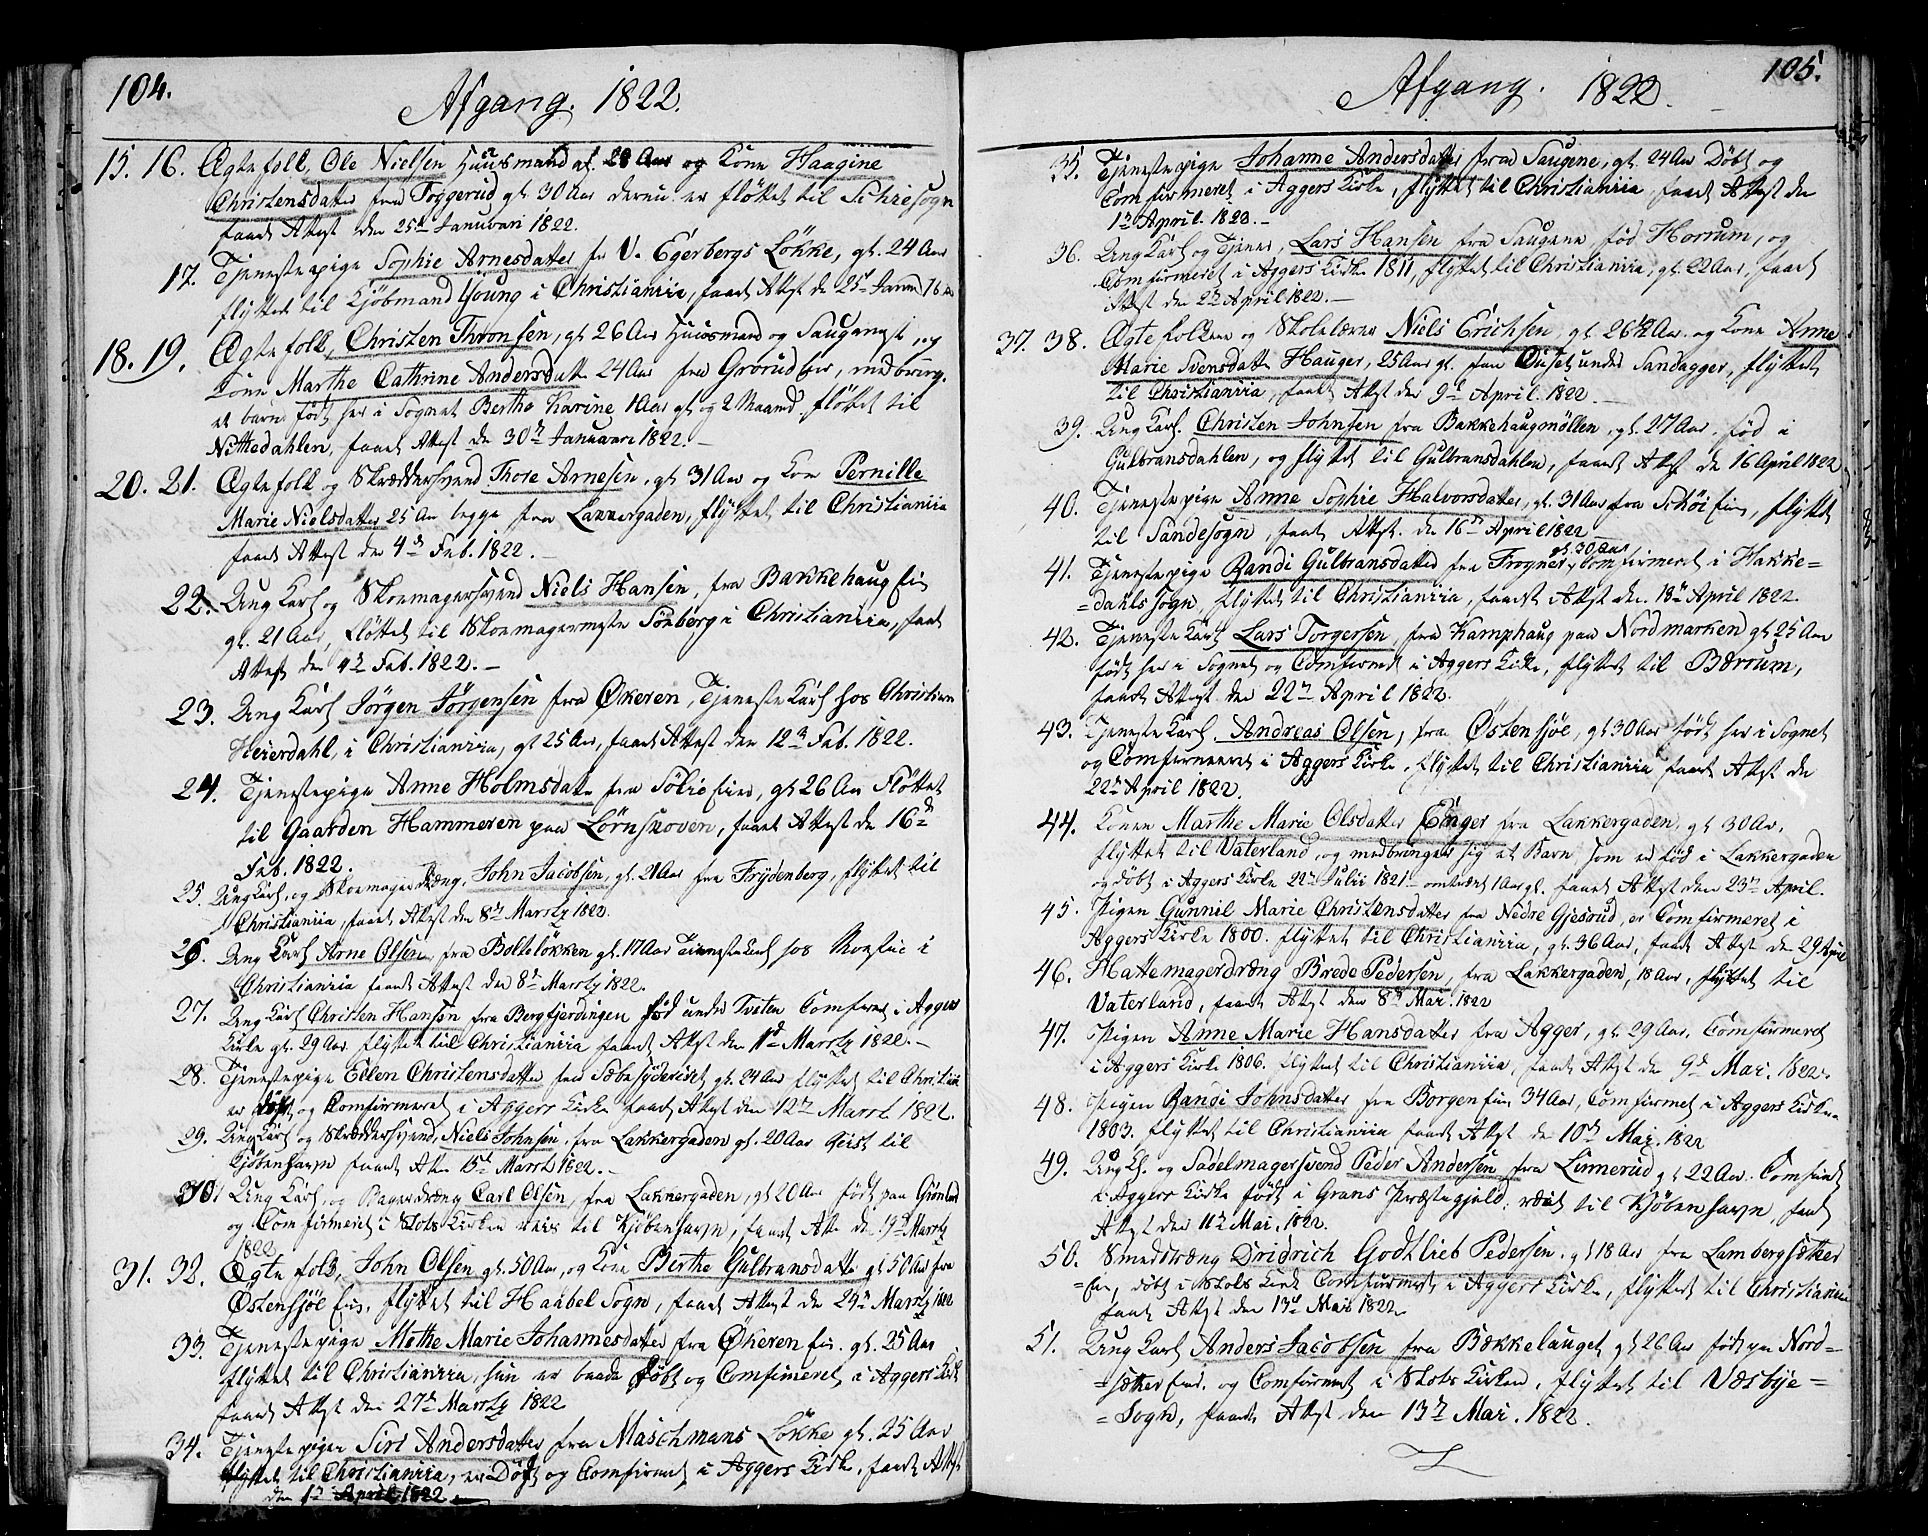 104.
Afgang. 1822.
15. 16. Ægtefolk, Ole Nielsen Huusmand gl. 28 Aar og Kone Haagine
Christensdatter fra Foggerud gl. 30 Aar er fløttet til Schiesogn
faaet Attest den 25de Januari 1822.
17. Tjenestepige Sophie Arnesdatter fr V. Egerbergs Løkke, gl. 24 Aar
flyttet til Kjøbmand Young i Christiania, faaet Attest de 25de Janu
18. 19. Ægtefolk, Christen Thronsen, gl 26 Aar Huusmand og og
Kone Marthe Cathrine Andersdatt 24 Aar fra Grorud Eie, medbring.
et barn født her i Sognet Berthe Karine 1 Aar gl og 2 Maand. fløttet til
Nittedahlen, faaet Attest de 30te Januari 1822.
20. 21. Ægtefolk og Skræddersvend Thore Arnesen, gl 31 Aar og Kone Pernille
Marie Nielsdatter 25 Aar begge fra Lakkergaden, flyttet til Christiania
faaet Attest den 4de Feb. 1822.
22. Ung Karl og Skomagersvend Niels Hansen, fra Bakkehaug Eie
gl. 21 Aar, fløttet til Skomagermester Sonberg i Christiania, faaet
Attest den 4de Feb. 1822.
23. Ung Karl Jørgen Jørgensen fra Økeren, Tjeneste Karl hos Christian
Heierdahl, i Christiania, gl 25 Aar, faaet Attest den 12te Feb. 1822.
24. Tjenestepige Anne Holmsdatt fra Solie Eie, gl 26 Aar Fløttet
til Gaarden Hammeren paa Lørnskoven, faaet Attest de 16de
Feb. 1822.
25. Ung Karl, og Skomager Dræng, John Jacobsen, gl. 21 Aar fra Frydenberg, flyttet til
Christiania, faaet Attest den 8de Marts 1822.
26. Ung Karl Arne Olsen, fra Bolteløkken gl. 17 Aar Tieneste Karl hos i
Christiania faaet Attest den 8de Marts 1822.
27. Ung Karl Christen Hansen fra Bergfjerdingen Fød under Tveten Comfirmet i Aggers
Kirke gl. 29 Aar flyttet til Christiania faaet Attest den 11te Marts 1822.
28. Tjenestepige Ellen Christensdatter fra Sæbesyderiet gl. 24 Aar flyttet til Christian
er Døbt og Comfirmeret i Aggers Kirke faaet Attest den 12te Marts 1822.
29. Ung Karl og Skræddersvend, Niels Johnsen. fra Lakkergaden gl. 20 Aar Reist til
Kjøbenhavn faaet Atte 15de Marts 1822.
30 Ung Karl, og Dræng Carl Olsen, fra Lakkergaden, gl 20 Aar født paa Grønland
og Comfirmeret i Slots Kirken reis til Kjøbenhavn, faaet Atte de 19de Marts
1822
31. 32. Ægtefolk, John Olsen gl. 50 Aar, og Kone Berthe Gulbransdatte gl 50 Aar fra
Østensjøe Eie, flyttet til Haabel Sogn, faaet Attest de 24de Marts 1822
33. Tjenestepige Mothe Marie Johannesdatter fra Økeren Eie. gl. 25 Aar
flyttet til Christiania, hun er baade Døbt og Comfirmeret i Aggers Kirke
faaet Attest den 27de Marts 1822
34. Tjenestepigen Siri Andersdatter fra Maschmans Løkke gl. 25 Aar
flyttet til Christiania, er Døbt og Comfirmet i Aggers Kirke, faaet Attest
den 1te April 1822
105.
Afgang. 1822.
35. Tjenestepige Johanne Andersdatter fra Saugene, gl. 24 Aar Døbt og
Comfirmeret i Aggers Kirke, flyttet til Christiania faaet Attest den
1te April. 1822.
36. Ung Karl og Tjener, Lars Hansen fra Saugene, fød Horrum, og
Comfirmeret i Aggers Kirke 1811, flyttet til Christiania, gl. 22 Aar, faaet
Attest den 2de April 1822.
37. 38. Ægte Folkene og Skolelærer Niels Erichsen, gl. 26½ Aar. og Kone Anne
Marie Svensdatte Hauger, 25 Aar gl. paa under Sandagger, flyttet
til Christiania, faaet Attest den 9de April. 1822.
39. Ung Karl. Christen Johnsen fra Bakkehaugmøllen, gl. 27 Aar. fød i
Gulbransdahlen, og flyttet til Gulbransdahlen, faaet Attest de 16 April 1822
40. Tjenestepige Anne Sophie Halvorsdatter, gl. 31 Aar fra Schøi Eie, flyttet
til Sandesogn, faaet Attest. de 16te April 1822
gl. 30 Aar
41. Tjenestepige Randi Gulbransdatter fra Frogner, Comfirmeret i Hakke=
=dahls Sogn, flyttet til Christiania, faaet Attest den 18de April 1822
42. Tjeneste Karl Lars Torgersen, fra Kamphaug paa Nordmarken gl 25 Aar
født her i Sognet og Comfirmet i Aggers Kirke, flyttet til Bærrum,
faaet Attest den 22de April 1822.
43. Tjeneste Karl. Andreas Olsen, fra Østensjøe, gl 30 Aar født her i Sognet
og Comfirmeret i Aggers Kirke, flyttet til Christiania faaet Attest den
22de April 1822.
44. Konen Marthe Marie Olsdatter Enger fra Lakkergaden, gl 30 Aar.
flyttet til Vaterland, og medbringer sig et Barn som er fød i Lakkergaden
og døbt i Aggers Kirke 22de Julii 1821 - omtrent 1 Aar gl. faaet Attest den 23de April.
45. Pigen Gunnil Marie Christensdatter fra Nedre Gjesrud, er Comfirmeret i
Aggers Kirke 1800. flyttet til Christiania, gl. 36 Aar, faaet Attest de 29 April
46. Hattemagerdræng Brede Pedersen, fra Lakkergaden, 18 Aar, flyttet til
Vaterland, faaet Attest den 8de Mai. 1822
47. Pigen Anne Marie Hansdatter fra Agger, gl. 29 Aar. Comfirmeret
i Aggers Kirke 1806. flyttet til Christiania, faaet Attest de 9de Mai. 1822.
48. Pigen Randi Johnsdatter fra Borgen Eie 34 Aar, Comfirmet i Aggers Kirke
1803. flyttet til Christiania faaet Attest de 10de Mai. 1822
49. Ung K. og Sadelmagersvend Peder Andersen fra Linnerud gl 22 Aar. Comfirmet
i Aggers Kirke født i Grans Præstegjeld, reist til Kjøbenhavn, faaet
Attest den 11te Mai. 1822.
50. Smeddræng Dridrich Godtlieb Pedersen. gl 18 Aar fra Lambergsæter
=Eie, døbt i Slots Kirke Comfirmet i Aggers Kirke, flyttet til Christiania
faaet Attest den 13de Mai 1822.
51. Ung Karl Anders Jacobsen fra Bækkelauget gl 26 Aar født paa Nord=
=sæter Eie. og Comfirmet i Slots Kirken, flyttet til Næsbye=
=Sogn, faaet Attest den 13de Mai. 1822.